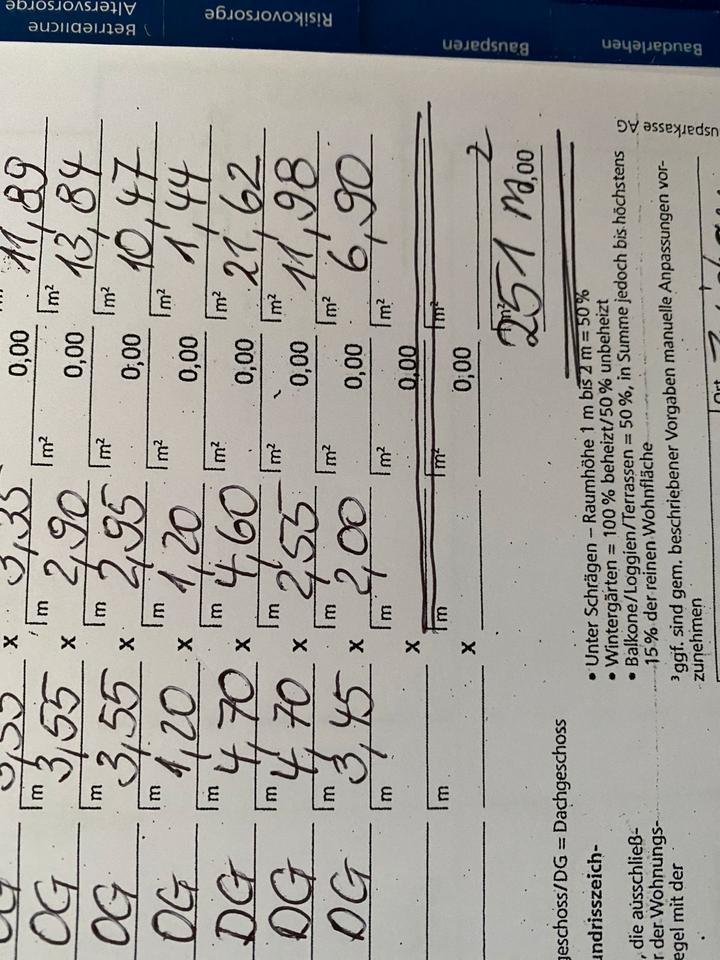 Betriebliche Altersvorsorge
Risikovorsorge
Bausparen
Baudarlehen
usparkasse AG
x 0,00 11,89
OG m 3,55 x m 2,90 m² 0,00 m² 13,84
OG m 3,55 x m 2,95 m² 0,00 m² 10,47
OG m 1,20 x m 1,20 m² 0,00 m² 1,44
DG m 4,70 x m 4,60 m² 0,00 m² 21,62
DG m 4,70 x m 2,55 m² 0,00 m² 11,98
DG m 3,45 x m 2,00 m² 0,00 m² 6,90
m x m m² 0,00 m²
m x m m² 0,00 m²
251 m² 0,00
geschoss/DG = Dachgeschoss
undrisszeich-
, die ausschließ-
r der Wohnungs-
egel mit der
• Unter Schrägen – Raumhöhe 1 m bis 2 m = 50 %
• Wintergärten = 100 % beheizt/50 % unbeheizt
• Balkone/Loggien/Terrassen = 50 %, in Summe jedoch bis höchstens
15 % der reinen Wohnfläche
³ ggf. sind gem. beschriebener Vorgaben manuelle Anpassungen vor-
zunehmen
Ort